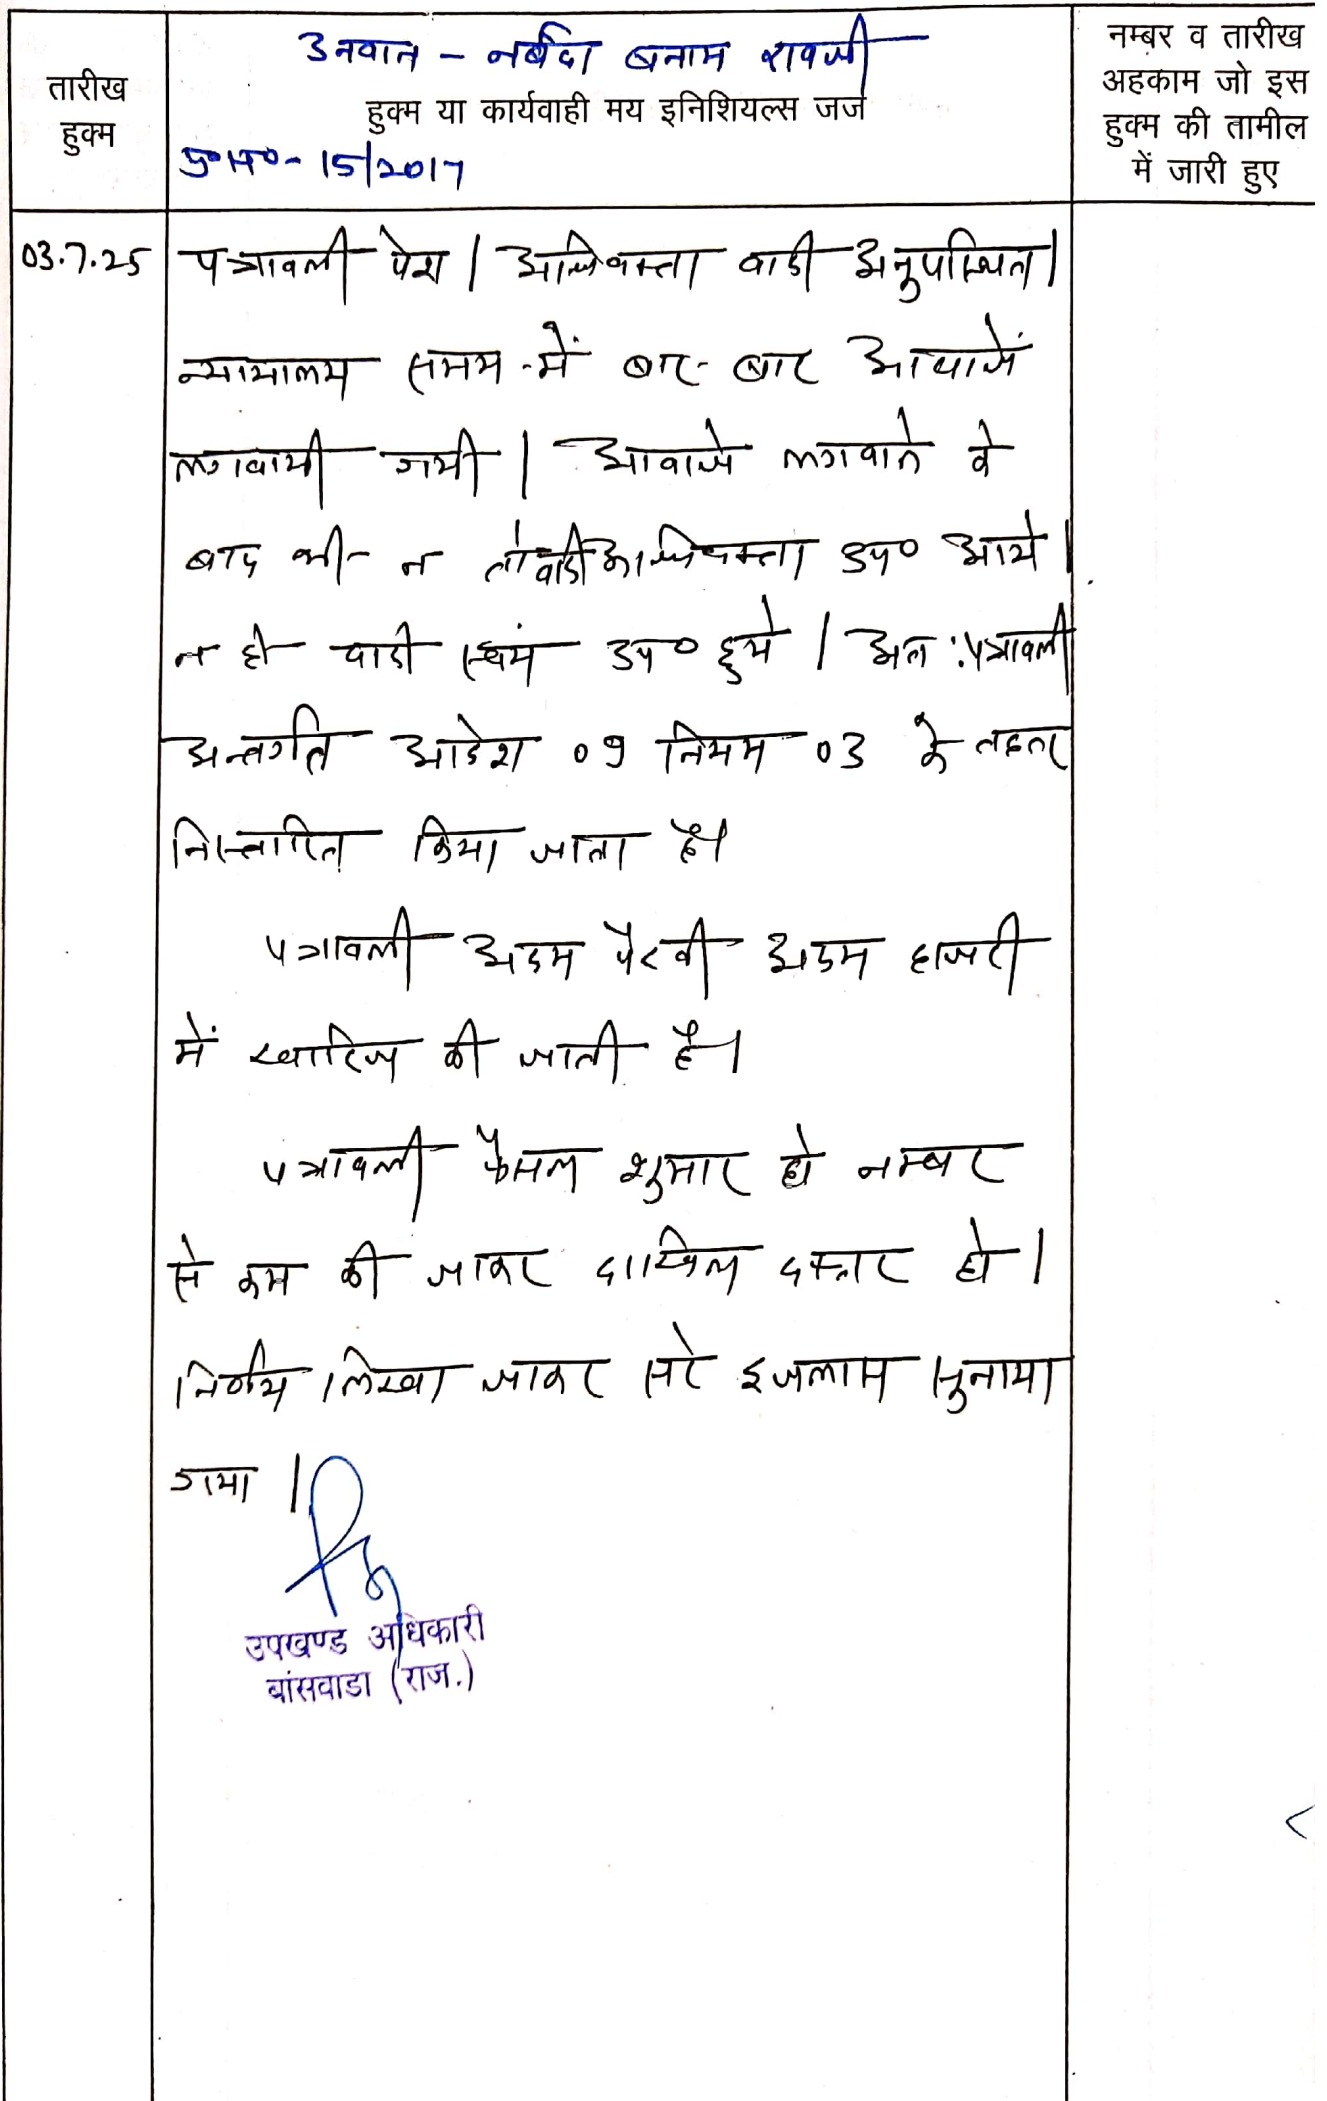 उनवान - नर्बदा बनाम रावजी
तारीख
हुक्म
हुक्म या कार्यवाही मय इनिशियल्स जज
नम्बर व तारीख
अहकाम जो इस
हुक्म की तामील
में जारी हुए
प्र०स०- 15/2017
03.7.25
पत्रावली पेश | अभिवक्ता वादी अनुपस्थित |
न्यायालय समय में बार-बार आवाजें
लगवायी गयी | आवाजे लगवाने के
बाद भी न तो वादी अभिवक्ता उप० आये |
न ही वादी स्वयं उप० हुये | अत: पत्रावली
अन्तर्गत आदेश 09 नियम 03 के तहत
निस्तारित किया जाता है।
पत्रावली अदम पैरवी अदम हाजरी
में खारिज की जाती है।
पत्रावली फैसल शुमार हो नम्बर
से कम की जाकर दाखिल दफ्तर हो |
निर्णय लिखा जाकर सरे इजलास सुनाया
गया |
उपखण्ड अधिकारी
बांसवाडा (राज.)